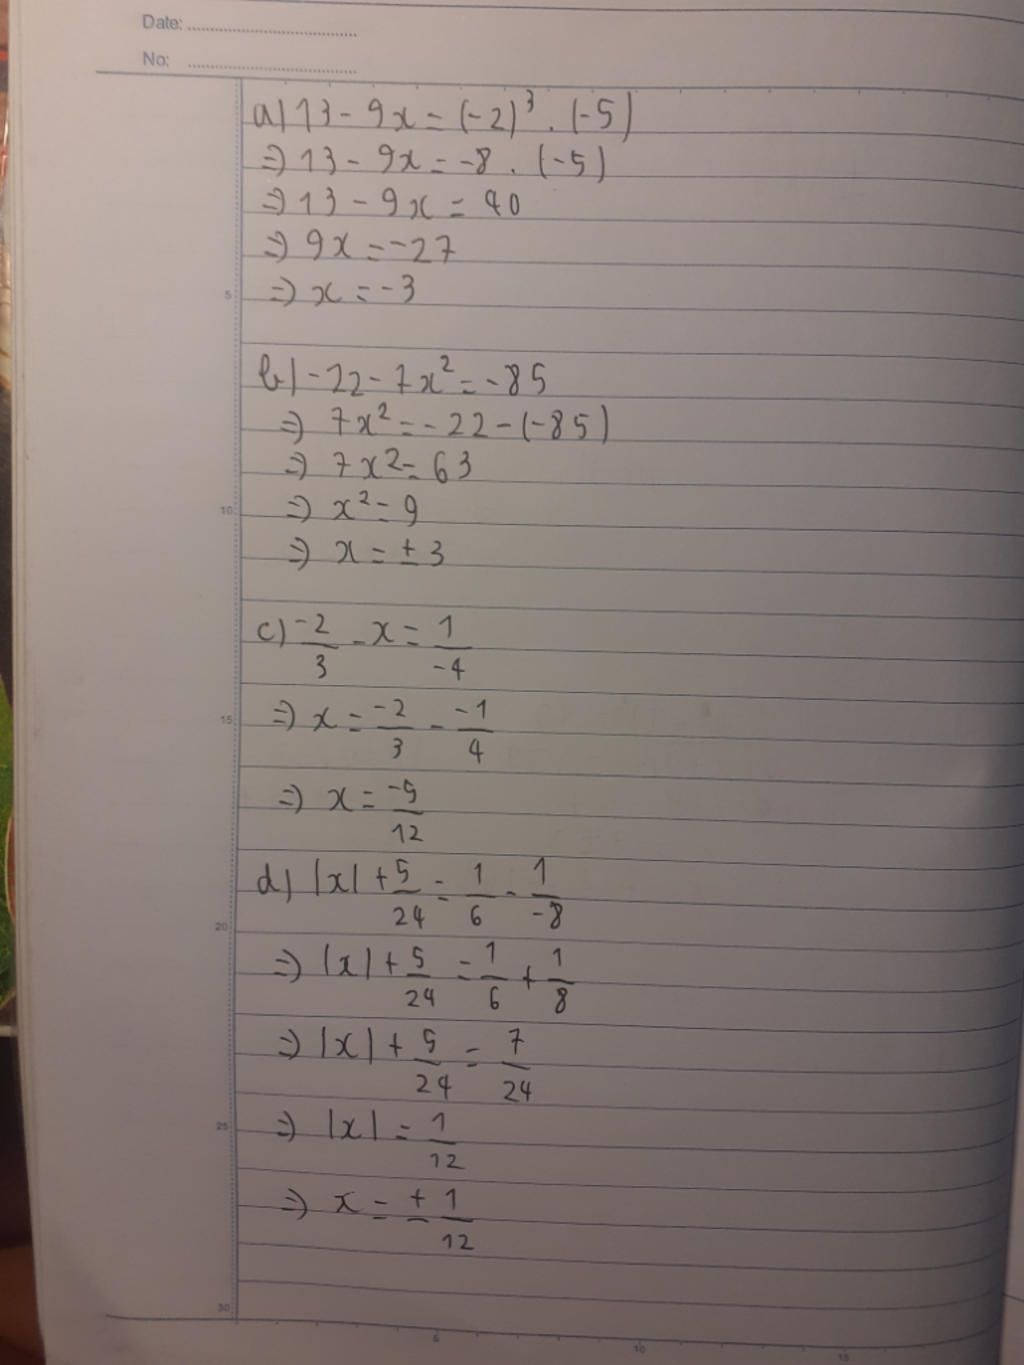 Date: ....................
No: ....................
a) 13 - 9x = (-2)³ . (-5)
=> 13 - 9x = -8 . (-5)
=> 13 - 9x = 40
=> 9x = -27
=> x = -3
5
b) -22 - 7x² = -85
=> 7x² = -22 - (-85)
=> 7x² = 63
=> x² = 9
10
=> x = ± 3
c) -2/3 - x = 1/-4
=> x = -2/3 - -1/4
15
=> x = -5/12
d) |x| + 5/24 = 1/6 - 1/-8
20
=> |x| + 5/24 = 1/6 + 1/8
=> |x| + 5/24 = 7/24
=> |x| = 1/12
25
=> x = ± 1/12
30
5 10 15